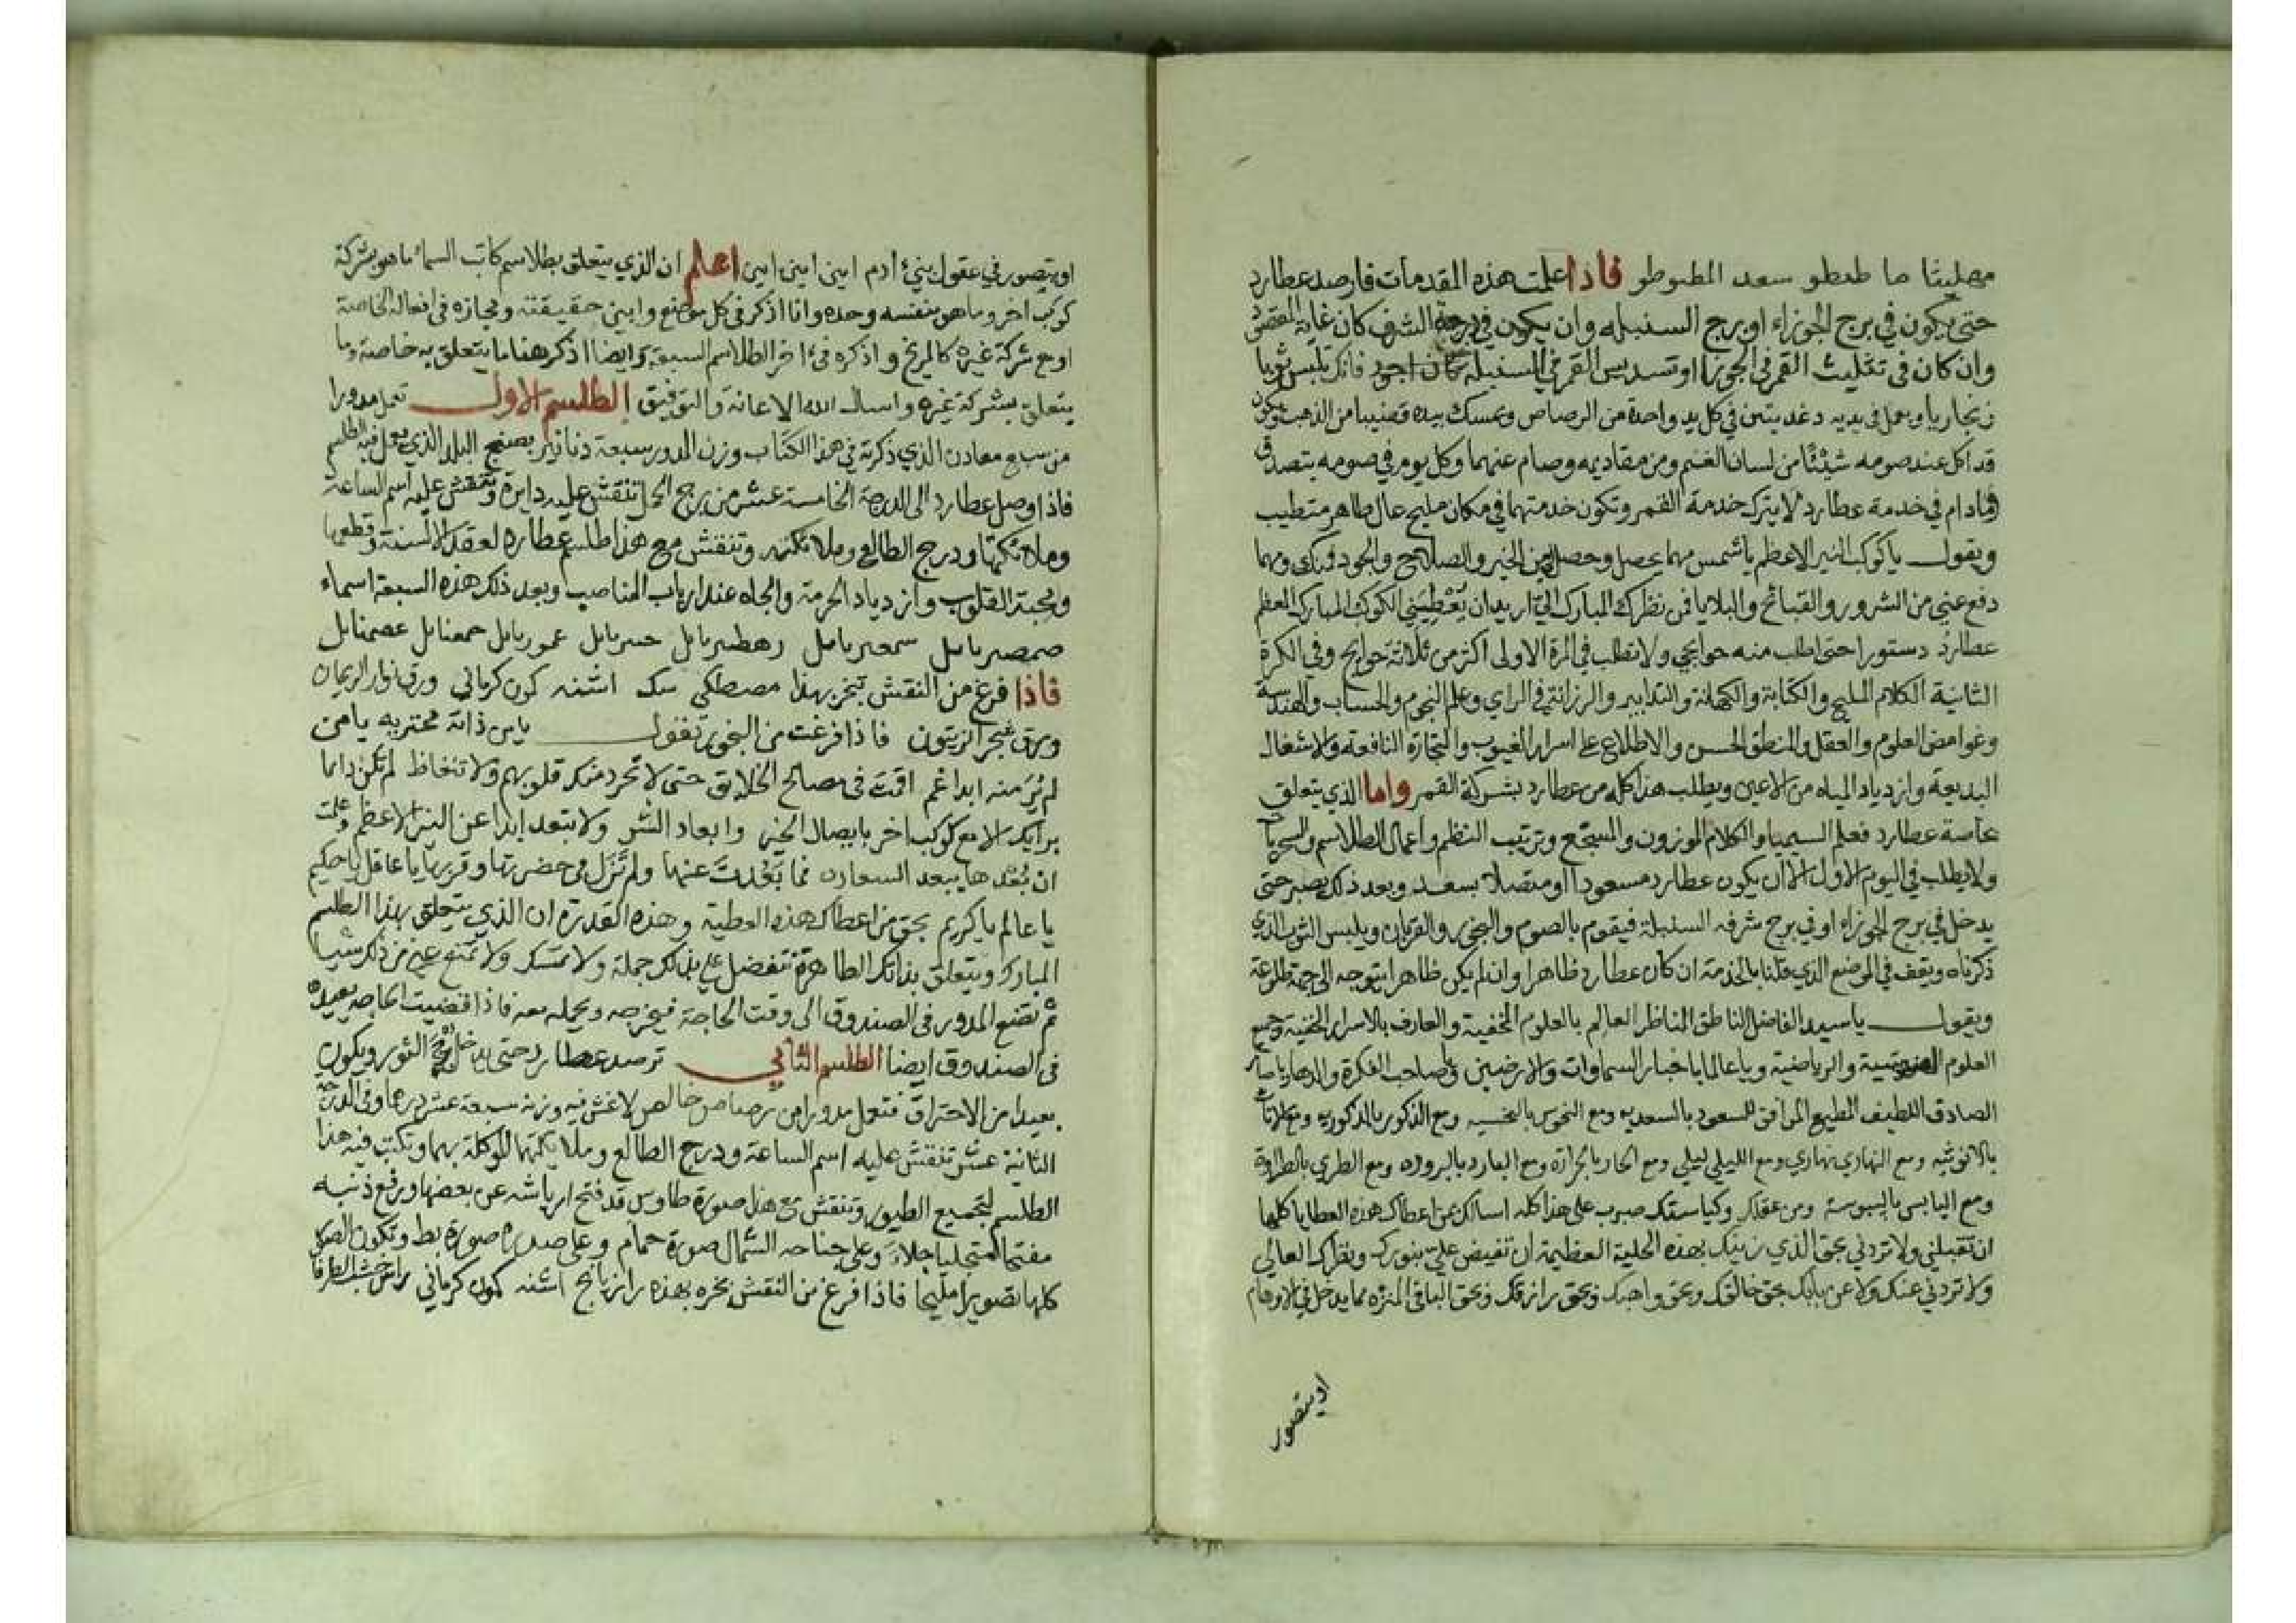 مهليثا ما طعطو سعد المطبوطو فاذا علمت هذه المقدمات فارصد عطارد
حتى يكون في برج الجوزاء او برج السنبله وان يكون في درجة الشرف كان غاية المقصود
وان كان في تثليث القمر في الجوزا او تسديس القمر في السنبلة كان اجود فانك تلبس ثوبا
زنجاريا ويعمل في يديه دغديتين في كل يد واحدة من الرصاص ويمسك بيده قضيبا من الذهب ويكون
قد اكل عند صومه شيئا من لسان الغنم ومن مقاديمه وصام عنهما وكل يوم في صومه يتصدق
فما دام في خدمة عطارد لا يترك خدمة القمر وتكون خدمتهما في مكان مليح عال طاهر متطيب
ويقول يا كوكب النير الاعظم يا شمس مهما يحصل وحصل من الخير والصلاح والجود فبك ومهما
دفع عني من الشرور والقبائح والبلايا في نظرك المبارك الي اريد ان يعطيني الكوكب المبارك المعظم
عطارد دستورا حتى اطلب منه حوايجي ولا تطلب في المرة الاولى اكثر من ثلاثة حوايج وفي الكرة
الثانية الكلام المليح والكتابة والكهانة والتدابير والرزانة في الراي وعلم النجوم والحساب والهندسة
وغوامض العلوم والعقل والمنطق الحسن والاطلاع على اسرار الغيوب والتجارة النافعة والاشغال
البديعة وازدياد المياه من الاعين ويطلب هذا كله من عطارد بشركة القمر واما الذي يتعلق
خاصة عطارد فعلم السيميا والكلام الموزون والمسجع وترتيب النظم واعمال الطلاسم والسحريا
ولا يطلب في اليوم الاول الا ان يكون عطارد مسعودا او متصلا بسعد وبعد ذلك يصبر حتى
يدخل في برج الجوزاء او في برج شرفه السنبلة فيقوم بالصوم والبخور والقربان ويلبس الثوب الذي
ذكرناه ويقف في الموضع الذي قلنا بالخدمة ان كان عطارد ظاهرا وان لم يكن ظاهرا يتوجه الى جهة طلوعه
ويقول يا سيد الفاضل الناطق المناظر العالم بالعلوم المخفية والعارف بالاسرار الخفية وجميع
العلوم الهندسية والرياضية ويا عالما باخبار السماوات والارضين وصاحب الفكرة والدهاء يا صاحب
الصادق اللطيف المطيع الموافق للسعود بالسعديه ومع النحوس بالنحسيه ومع الذكور بالذكوريه ومع الاناث
بالانوثيه ومع النهاري نهاري ومع الليلي ليلي ومع الحار بالحرارة ومع البارد بالبروده ومع الطري بالطراوة
ومع اليابس باليبوسة ومن عقلك وكياستك صبرت على هذا كله اسالك بمن اعطاك هذه العطايا كلها
ان تقبلني ولا تردني بحق الذي زينك بهذه الحلية العظيمة ان تفيض علي بنورك ونظرك العالي
ولا تردني عنك ولا عن بابك بحق خالقك وبحق واهبك وبحق رازقك وبحق الباقي المنزه مما يدخل في الاوهام
او يتصور
او يتصور في عقول بني ادم امين امين امين اعلم ان الذي يتعلق بطلاسم كاتب السما ما هو بشركة
كوكب اخر وما هو بنفسه وحده وانا اذكر في كل موضع وابين حقيقته ومجازه في افعاله الخاصة
او مع شركة غيره كالمريخ واذكره في اخر الطلاسم السبعة وايضا اذكر هنا ما يتعلق به خاصة وما
يتعلق بشركة غيره واسال الله الاعانة والتوفيق الطلسم الاول تعمل مدورا
من سبع معادن الذي ذكرته في هذا الكتاب وزن المدور سبعة دنانير بصنج البلد الذي يعمل فيه الطلسم
فاذا وصل عطارد الى الدرجة الخامسة عشر من برج الحمل تنقش عليه دايرة وتنقش عليه اسم الساعة
وملائكتها ودرج الطالع وملائكته وتنقش مع هذا طلسم عطارد لعقد الالسنة وقطعها
ومحبة القلوب وازدياد الحرمة والجاه عند ارباب المناصب وبعد ذلك هذه السبعة اسماء
صمصريايل سمعيريايل رهطيريايل حسريايل عموريايل حمعنايل عصمنايل
فاذا فرغ من النقش تبخر بهذا مصطكي سك اشنه كمون كرماني ورق نوار الريحان
ورق شجر الزيتون فاذا فرغت من البخور تقول يا من ذاته محتربه يا من
لم ير منه ابدا غم اقمت في مصالح الخلايق حتى لا تحرد منك قلوبهم ولا تنغاظ لم تكن دايما
برايك الا مع كوكب اخر بايصال الخير وابعاد الشر ولا بتعد ابدا عن النير الاعظم وعلمت
ان بعدها يبعد السعاده فما بعدت عنها ولم تزل من حضرتها وقربها يا عاقل يا حكيم
يا عالم يا كريم بحق من اعطاك هذه العطية وهذه القدرة ان الذي يتعلق بهذا الطلسم
المبارك ويتعلق بذاتك الطاهرة تتفضل علي بذلك جملة ولا تمسك ولا تمنع عني من ذلك شيا
ثم تضع المدور في الصندوق الى وقت الحاجة فيخرجه ويحمله معه فاذا قضيت الحاجه يعيده
في الصندوق ايضا الطلسم الثاني ترصد عطارد حتى يدخل برج الثور ويكون
بعيدا من الاحتراق فتعمل مدورا من رصاص خالص لا غش فيه وزنه سبعة عشر درهما وفي الدرجة
الثانية عشر تنقش عليه اسم الساعة ودرج الطالع وملايكتهما الموكلة بهما وتكتب فيه هذا
الطلسم لتجميع الطيور وتنقش مع هذا صورة طاوس قد فتح ارياشه عن بعضها ورفع ذنبه
مفتحا متجليا جلاء وعلى جناحه الشمال صورة حمام وعلى صدره صورة بط وتكون الصور
كلها تصويرا مليحا فاذا فرغ من النقش بخره بهذه رازيانج اشنه كمون كرماني راس خشب الطرفا